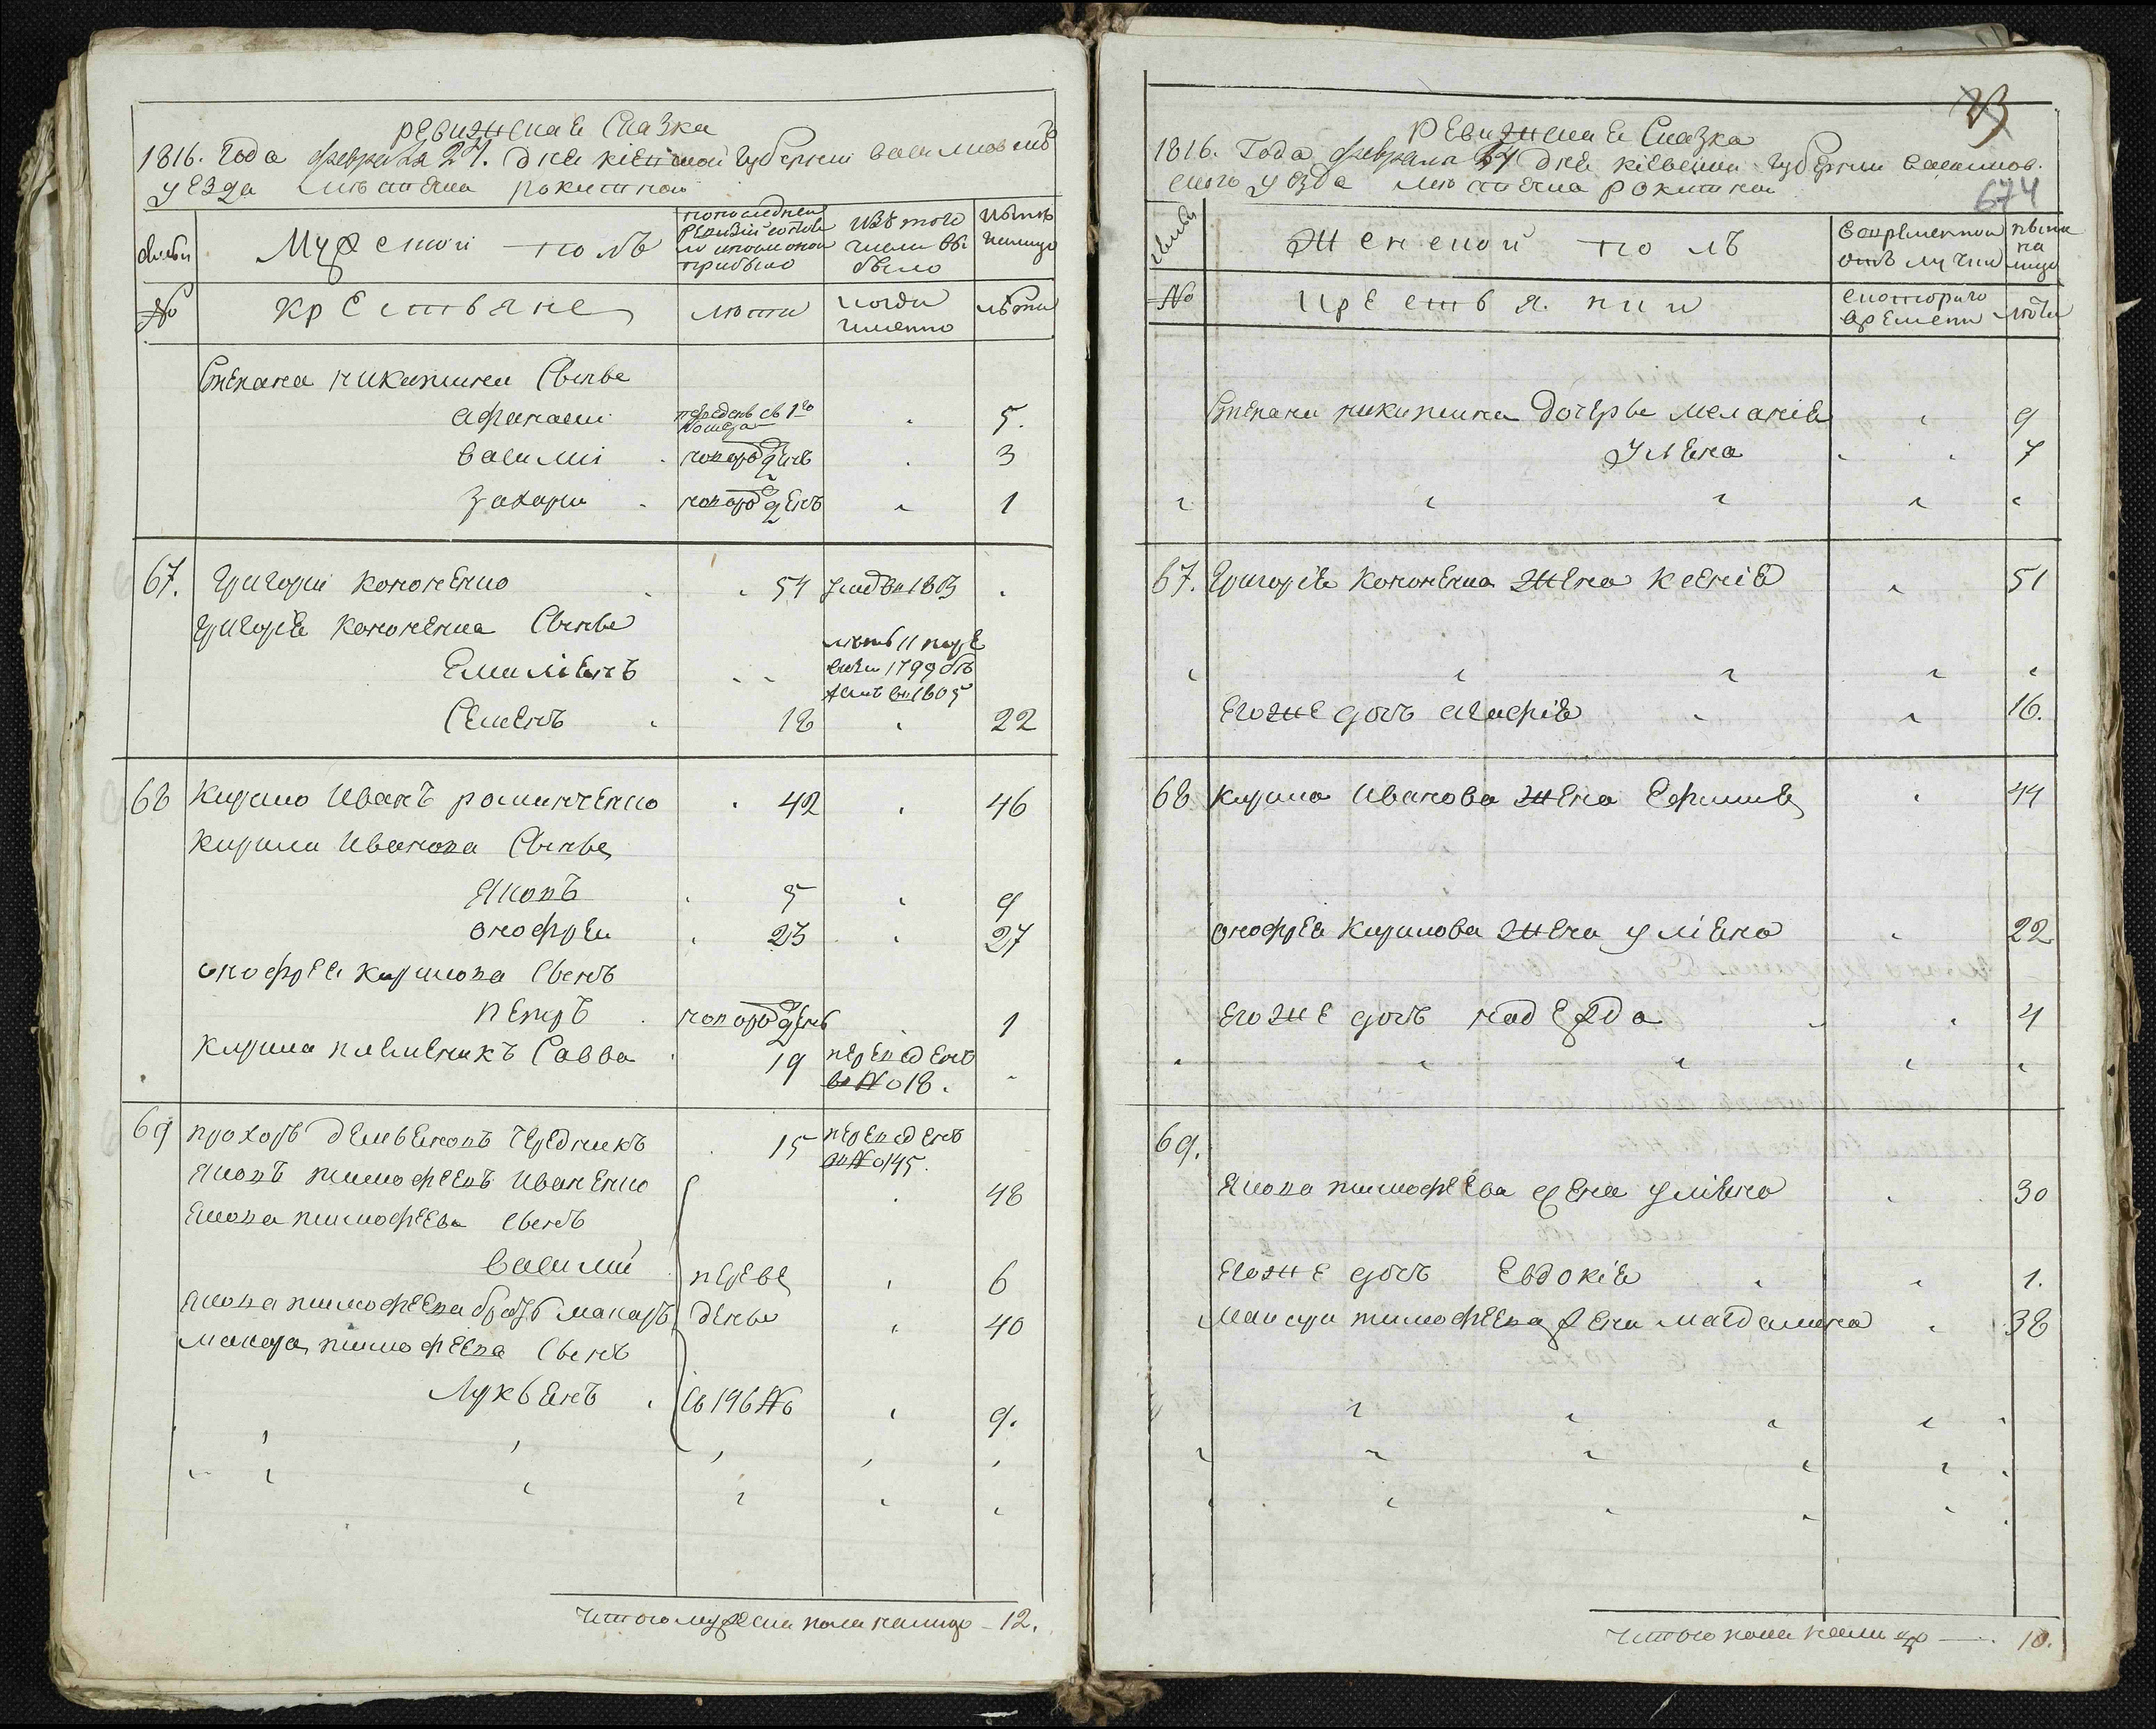 ревижская Сказка
1816. Года февраля 27. дня кіевской губернии васильковскаго
уезда местечка рокитной
семьи
Мужеской полъ
по последней ревизии состояло и после оной прибыло
изъ того числа выбыло
ныне на лицо
№
крестьяне
лета
когда именно
лета
Степана никитина Сынве
афанасий переведенъ съ 1го номера 5.
василий новорожденъ 3
захари новорожденъ 1
67. Григорий кононенко 54 умре в 1813
Григория кононенка Сынве
летъ 11 по ре
Емилиянъ визии 1799
в 1805
Семенъ 18 22
68 Кирило Иванъ романченко 42 46
Кирила Иванова Сынве
Яковъ 5 9
онофрей 23 27
онофрея кирилова Сынъ
петръ новорожденъ 1
Кирила племеникъ Савва 19 переведенъ
в № 18.
69 прохоръ демьяновъ чередникъ 15 переведенъ
в № 145.
Яковъ тимофеевъ иваненко 48
Якова тимофеева Сынъ
василий переве 6
Якова тимофеева братъ макаръ дены 40
макара тимофеева Сынъ
Лукьянъ съ 196 № 9.
Итого мужеска пола налицо - 12.
73
ревижская Сказка
1816. Года февраля 27 дня кіевской губернии васильков.
скаго уезда местечка рокитной
674
семьи
Женской полъ
во временной отлучке
ныне на лицо
№
крестьянки
с которого времени
лета
Степана никитина дочерье меланія 9
Уляна 7
67. Григорія кононенка жена ксенія 51
его же дочь агафія 16.
68 кирила Иванова жена Ефимия 44
онофрея кирилова жена уліяна 22
его же дочь надежда 4
69.
Якова тимофеева жена уліяна 30
его же дочь Евдокія 1.
макара тимофеева жена магдалина 38
Итого пола налицо —. 10.